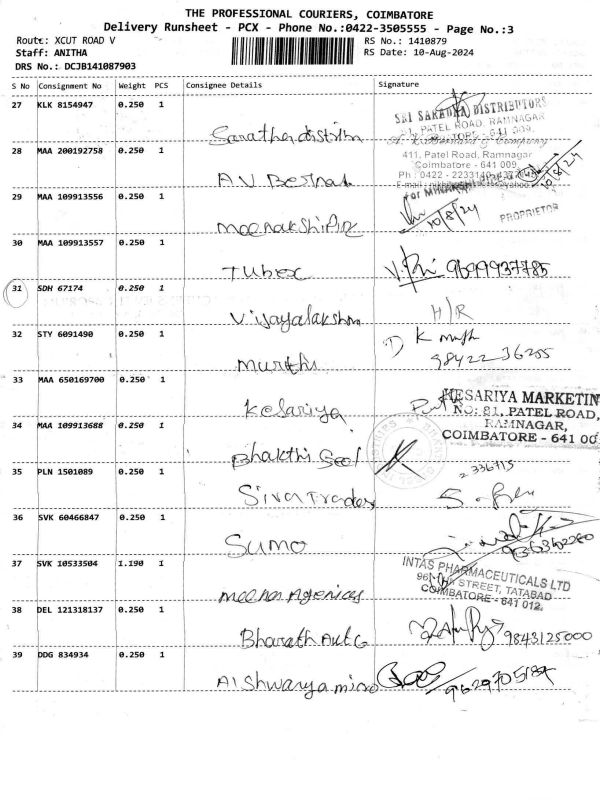 THE PROFESSIONAL COURIERS, COIMBATORE
Delivery Runsheet - PCX - Phone No.:0422-3505555 - Page No.:3
Route: XCUT ROAD V
RS No.: 1410879
Staff: ANITHA
RS Date: 10-Aug-2024
DRS No.: DCJB141087903
S No Consignment No Weight PCS Consignee Details Signature
27 KLK 8154947 0.250 1
SRI SARADHA DISTRIBUTORS
PATEL ROAD, RAMNAGAR
28 MAA 200192758 0.250 1
411, Patel Road, Ramnagar
Coimbatore - 641 009
A V Bernak
29 MAA 109913556 0.250 1
10/8/24
PROPRIETOR
30 MAA 109913557 0.250 1
Tubex
9699937785
31 SDH 67174 0.250 1
Vijayalakshm
H/R
32 STY 6091490 0.250 1
Murthi
98422 36205
33 MAA 650169700 0.250 1
Kesariya
KESARIYA MARKETIN
NO: 81, PATEL ROAD,
RAMNAGAR,
COIMBATORE - 641 00
34 MAA 109913688 0.250 1
Bhakthi Seel
35 PLN 1501089 0.250 1
Siva Traders
2336715
36 SVK 60466847 0.250 1
Sumo
37 SVK 10533504 1.190 1
Meena Agencies
INTAS PHARMACEUTICALS LTD
STREET, TATABAD
COIMBATORE - 641 012.
38 DEL 121318137 0.250 1
Bharath Auto
9843125000
39 DDG 834934 0.250 1
Aishwarya mino
9629705184